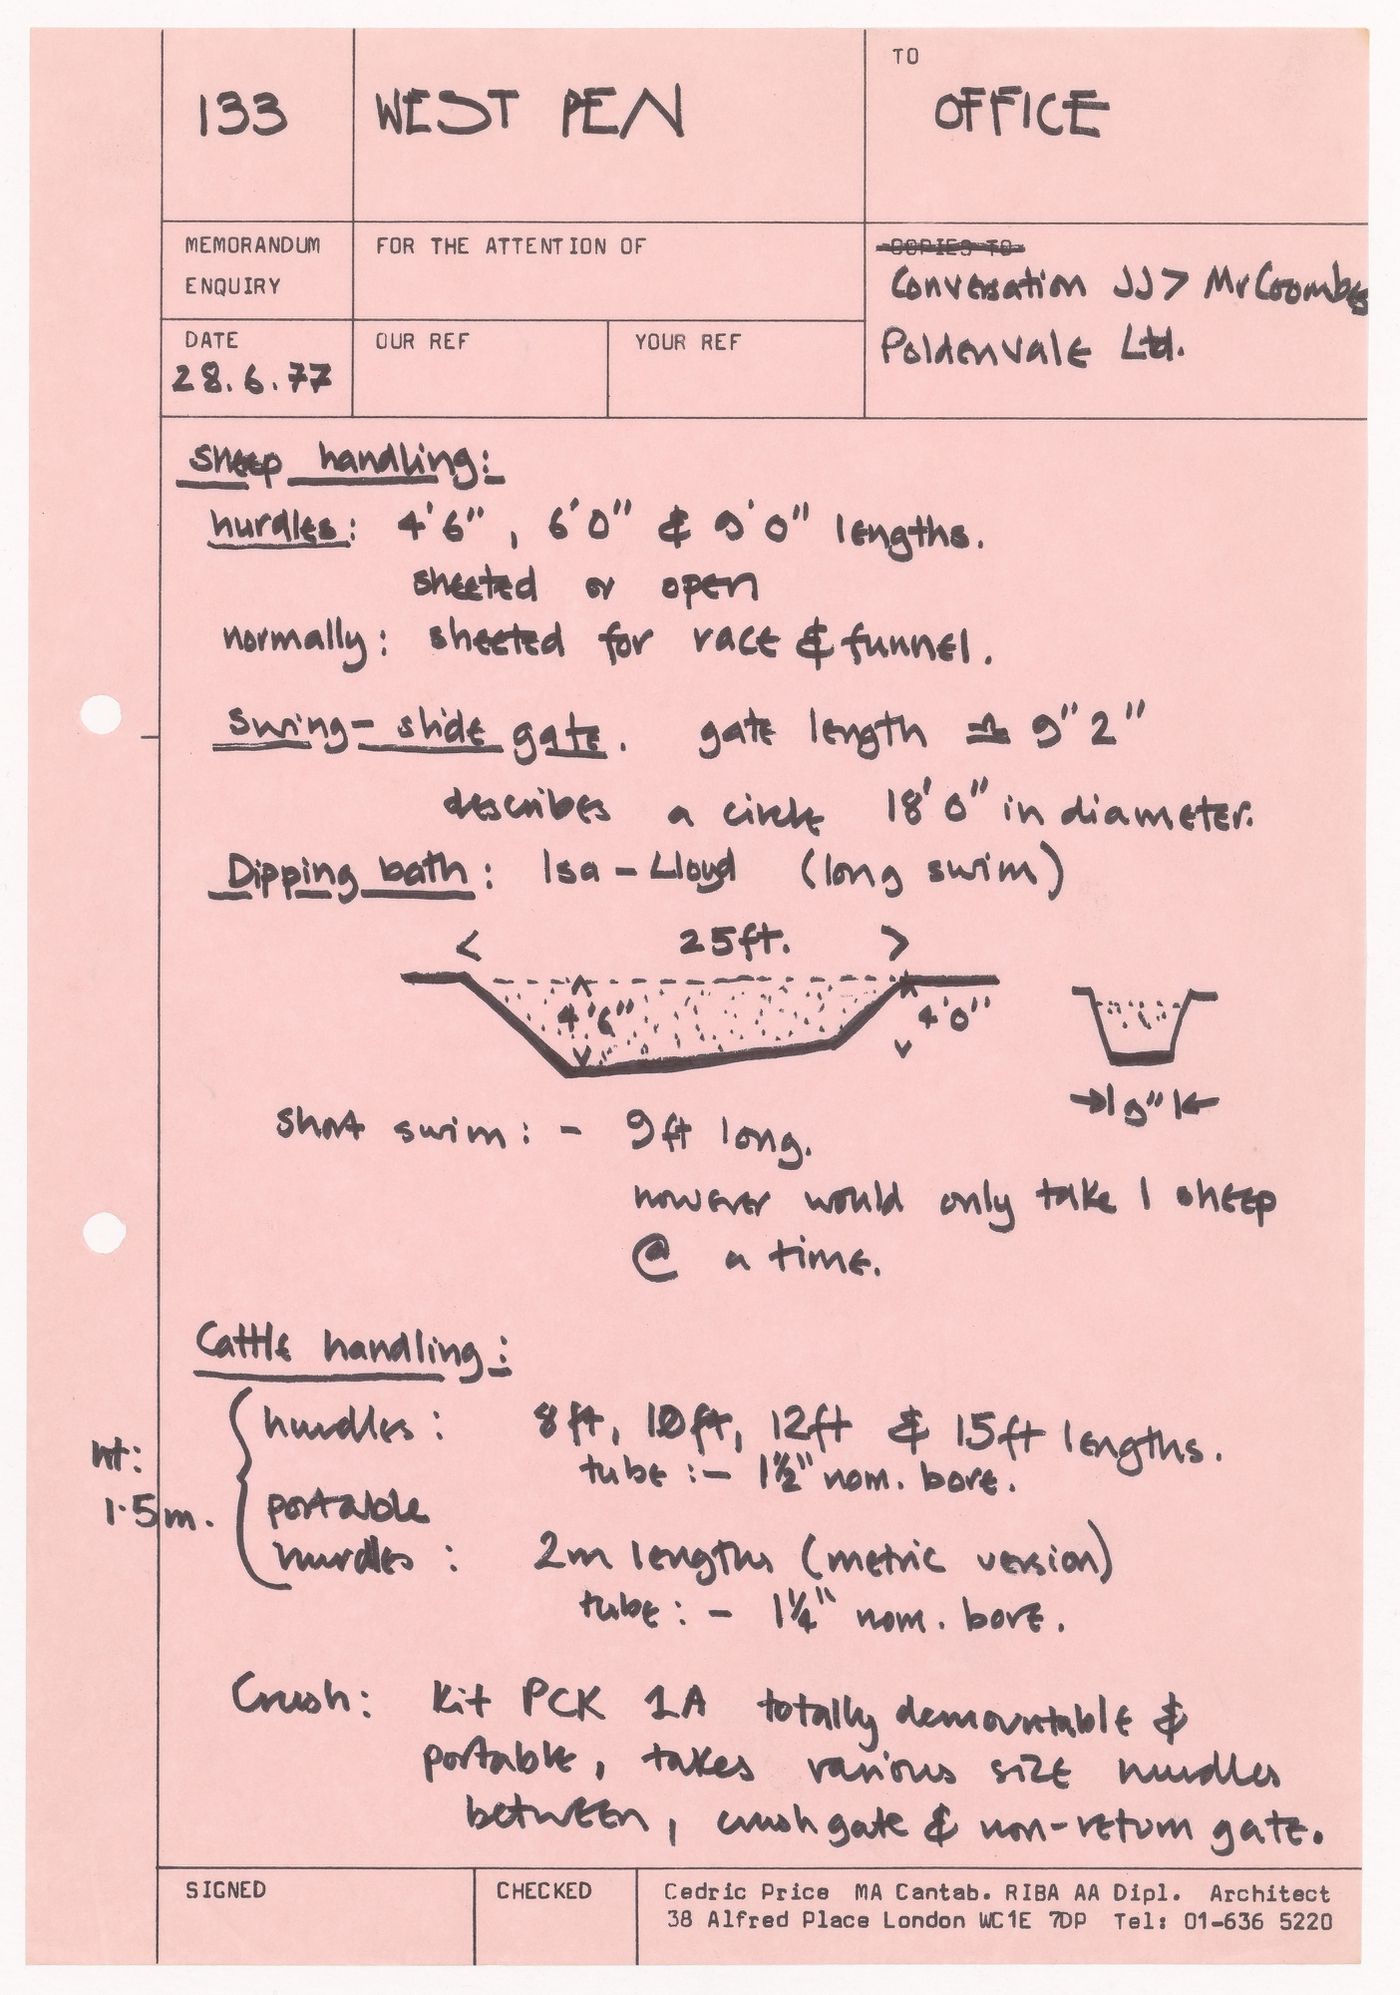 133 WEST PEN TO OFFICE
MEMORANDUM
ENQUIRY
FOR THE ATTENTION OF
COPIES TO
Conversation JJ > Mr Coombes
Poldenvale Ltd.
DATE
28.6.77
OUR REF
YOUR REF
Sheep handling:
hurdles: 4'6", 6'0" & 9'0" lengths.
sheeted or open
normally: sheeted for race & funnel.
Swing-slide gate. gate length ≏ 9"2"
describes a circle 18'0" in diameter.
Dipping bath: Isa-Lloyd (long swim)
< 25ft. >
4'6"
4'0"
9"
short swim: - 9ft long.
however would only take 1 sheep
@ a time.
Cattle handling:
hurdles: 8ft, 10ft, 12ft & 15ft lengths.
tube:- 1½" nom. bore.
ht:
1.5m.
portable
hurdles: 2m lengths (metric version)
tube:- 1¼" nom. bore.
Crush: Kit PCK 1A totally demountable &
portable, takes various size hurdles
between, crush gate & non-return gate.
SIGNED
CHECKED
Cedric Price MA Cantab. RIBA AA Dipl. Architect
38 Alfred Place London WC1E 7DP Tel: 01-636 5220